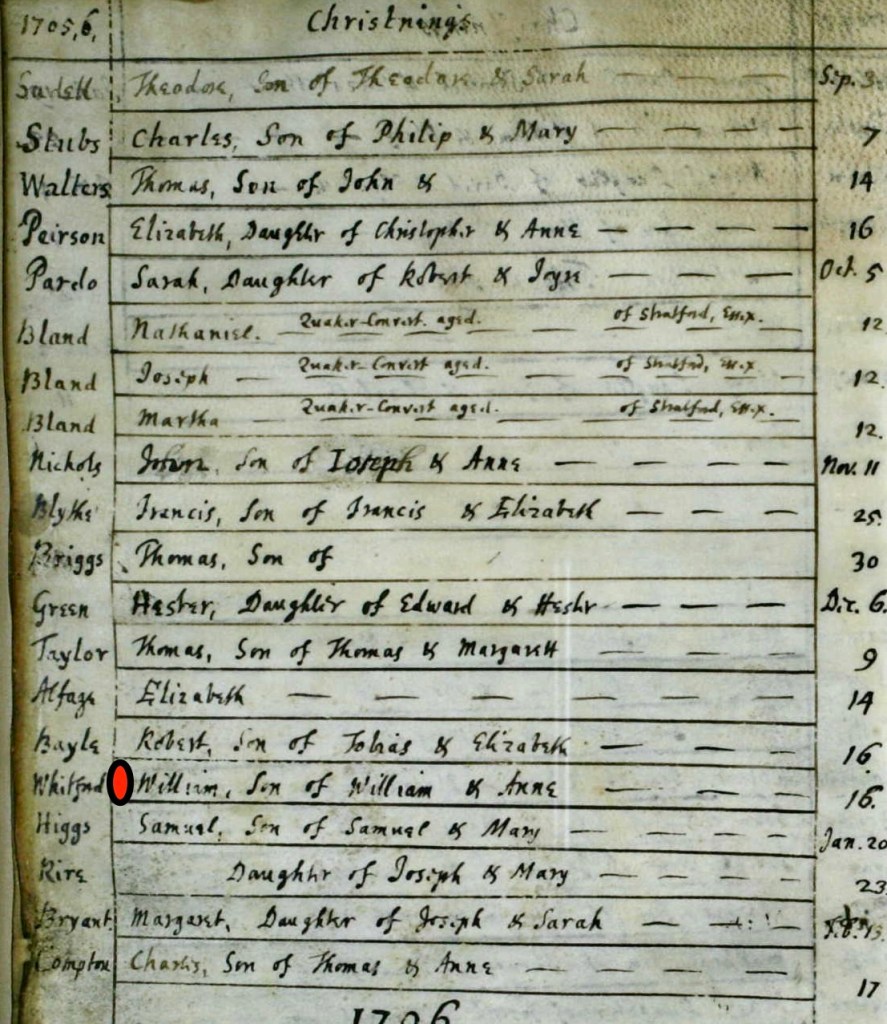 1705,6, Christnings
Theodore, Son of Theodore & Sarah Sep. 3
Stubs Charles, Son of Philip & Mary 7
Walters Thomas, Son of John & 14
Peirson Elizabeth, Daughter of Christopher & Anne 16
Pardo Sarah, Daughter of Robert & Joyce Oct. 5
Bland Nathaniel. Quaker-Convert. aged. of Stratford, Essex. 12
Bland Joseph Quaker-Convert aged. of Stratford, Essex 12.
Bland Martha Quaker-Convert aged. of Stratford, Essex. 12.
Nichols John, Son of Joseph & Anne Nov. 11
Blythe Francis, Son of Francis & Elizabeth 25.
Briggs Thomas, Son of 30
Green Hester, Daughter of Edward & Hester Dec. 6.
Taylor Thomas, Son of Thomas & Margarett 9
Alfage Elizabeth 14
Bayle Robert, Son of Tobias & Elizabeth 16
Whitford William, Son of William & Anne 16.
Higgs Samuel, Son of Samuel & Mary Jan. 20
Rice Daughter of Joseph & Mary 23
Bryant Margaret, Daughter of Joseph & Sarah Feb. 13.
Compton Charles, Son of Thomas & Anne 17
1706